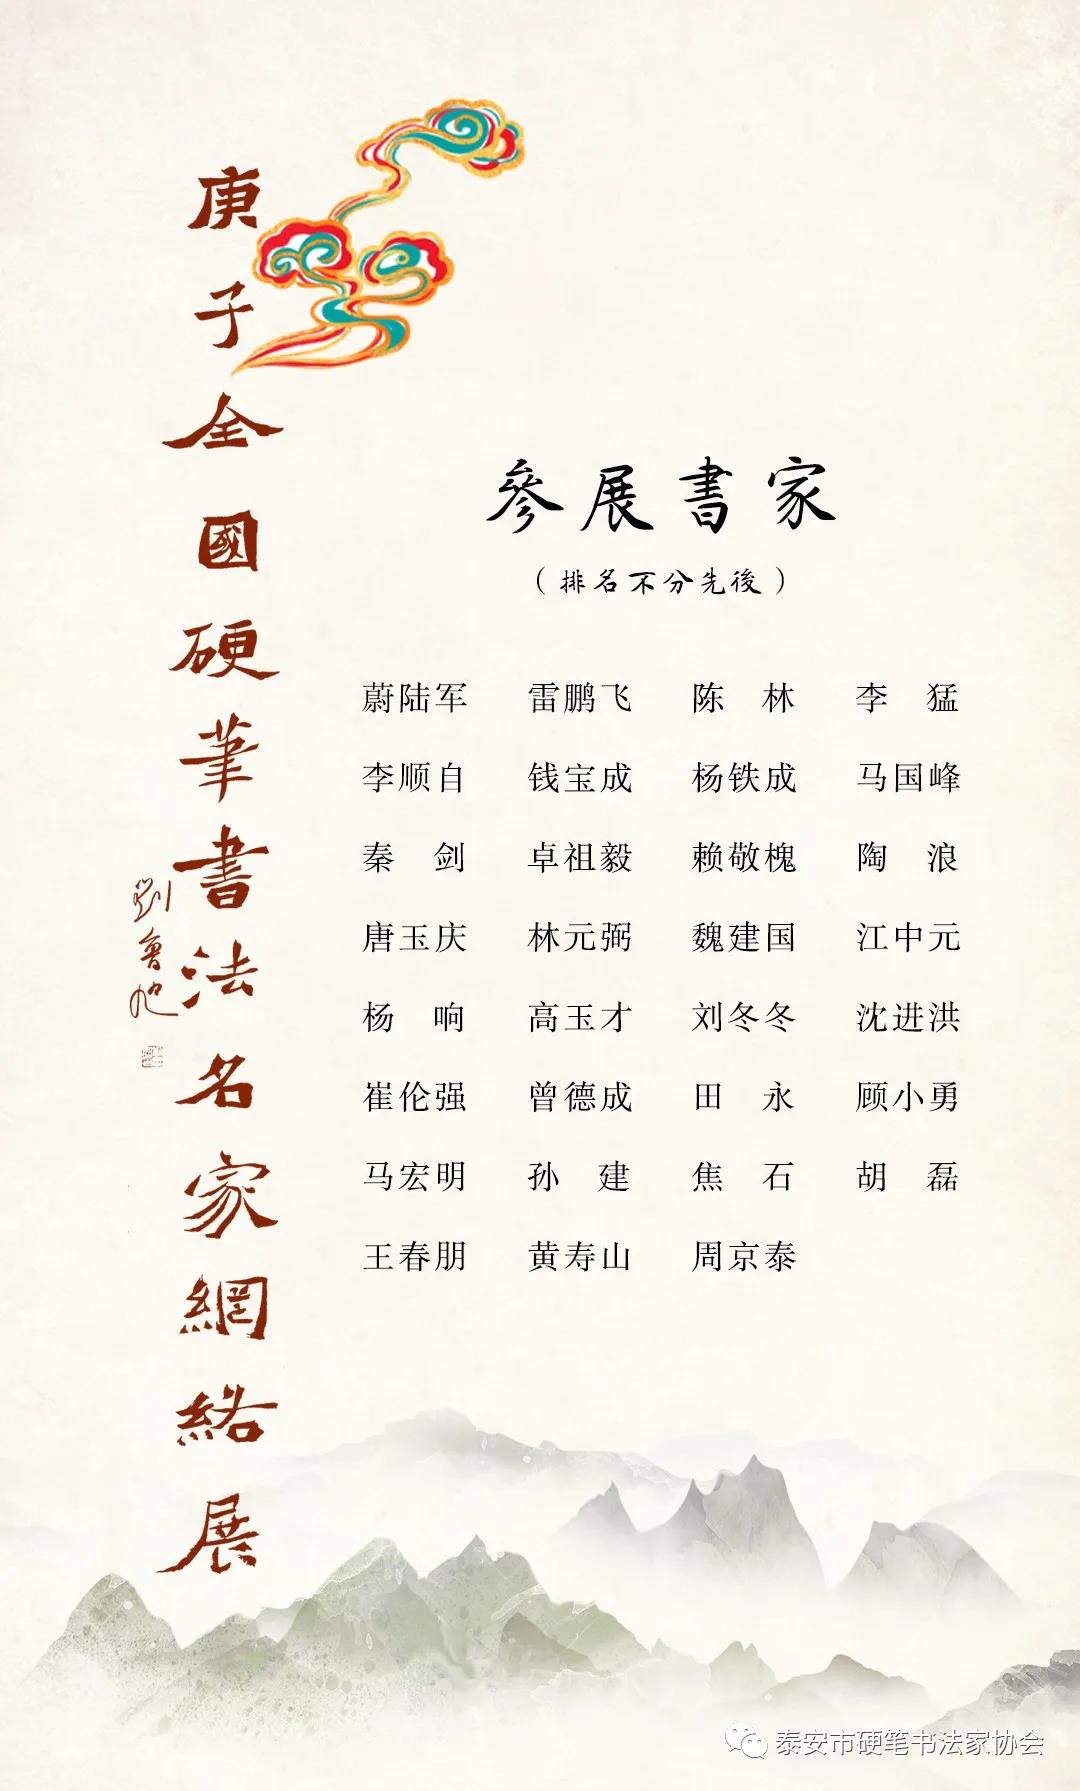 庚子全國硬筆書法名家網絡展
劉魯旭
參展書家
（排名不分先後）
蔚陆军 雷鹏飞 陈林 李猛
李顺自 钱宝成 杨铁成 马国峰
秦剑 卓祖毅 赖敬槐 陶浪
唐玉庆 林元弼 魏建国 江中元
杨响 高玉才 刘冬冬 沈进洪
崔伦强 曾德成 田永 顾小勇
马宏明 孙建 焦石 胡磊
王春朋 黄寿山 周京泰
泰安市硬笔书法家协会